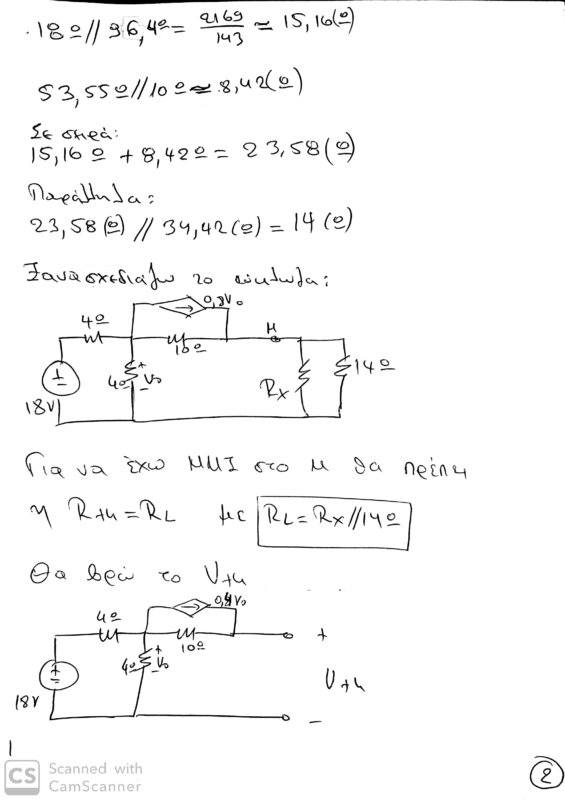 18Ω // 96,4Ω = 2169/143 ≃ 15,16(Ω)
53,55Ω // 10Ω ≃ 8,42(Ω)
Σε σειρά:
15,16Ω + 8,42Ω = 23,58(Ω)
Παράλληλα:
23,58(Ω) // 34,42(Ω) = 14(Ω)
Ξανασχεδιάζω το κύκλωμα:
0,8V₀
4Ω
10Ω
M
+
4Ω
V₀
-
Rx
14Ω
18V
Για να έχω ΜΜΙ στο Μ θα πρέπει
η Rth = RL με RL = Rx // 14Ω
Θα βρω το Vth
V₀
4Ω
10Ω
+
4Ω
V₀
-
Vth
18V
-
CS Scanned with
CamScanner
2